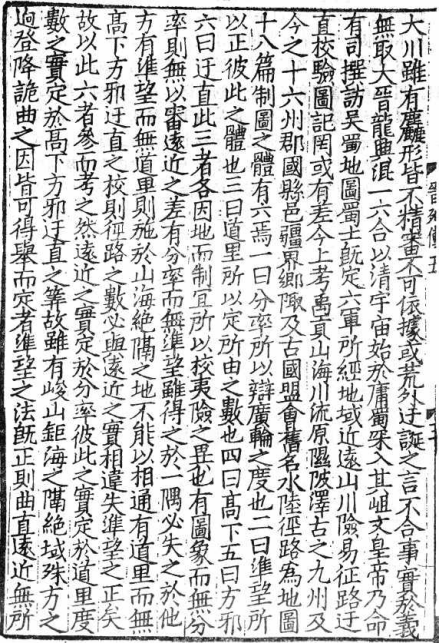 晉列傳五
大川雖有麤形皆不精審不可依據或荒外迂誕之言不合事實於義
無取大晉龍興混一六合以清宇宙始於庸蜀罙入其岨文皇帝乃命
有司撰訪吳蜀地圖蜀土既定六軍所經地域近遠山川險易征路迂
直校驗圖記罔或有差今上考禹貢山海川流原隰陂澤古之九州及
今之十六州郡國縣邑疆界鄉陬及古國盟會舊名水陸徑路為地圖
十八篇制圖之體有六焉一曰分率所以辯廣輪之度也二曰準望所
以正彼此之體也三曰道里所以定所由之數也四曰高下五曰方邪
六曰迂直此三者各因地而制宜所以校夷險之異也有圖象而無分
率則無以審遠近之差有分率而無準望雖得之於一隅必失之於他
方有準望而無道里則施於山海絕隔之地不能以相通有道里而無
高下方邪迂直之校則徑路之數必與遠近之實相違失準望之正矣
故以此六者參而考之然遠近之實定於分率彼此之實定於道里度
數之實定於高下方邪迂直之筭故雖有峻山鉅海之隔絕域殊方之
迥登降詭曲之因皆可得舉而定者準望之法既正則曲直遠近無所